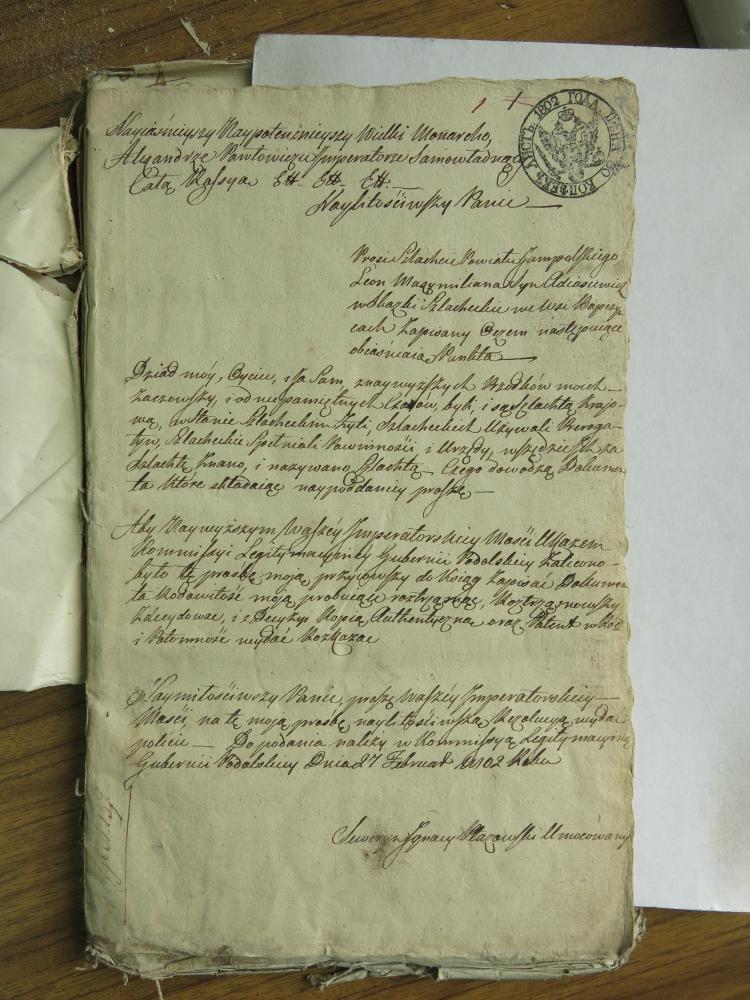 1 1
ЛИСТЪ 1802 ГОДА ЦѢНА 30 КОПѢЕКЪ
Nayiaśnieyszy Naypotężnieyszy Wielki Monarcho,
Alexandrze Pawłowiczu Imperatorze Samowładnący
Całą Rossyą Ett. Ett. Ett.
Naymiłościwszy Panie
Prosi Szlachcic Powiatu Jampolskiego
Leon Maxymiliana Syn
w Skazki Szlacheckie we Wsi
cach Zapisany Czem następuiące
obiaśniaią Punkta
Dziad móy, Oyciec, i Ja Sam, znaywyższych Przodków moich
zacząwszy, i od niepamiętnych Czasów, byli, i są Szlachtą Krajo-
wą, w Stanie Szlacheckim Żyli, Szlacheckich Używali Preroga-
tyw, Szlacheckie Spełniali Powinności i Urzędy, wszędzie Ich za
Szlachtę Znano, i nazywano Szlachtą Czego dowodzą Dokumen-
ta Które składaiąc naypoddaniey proszę
Aby Naywyższym Waszéy Imperatorskiey Mości Ukazem
Kommissyi Legitymacyiney Gubernii Podolskiey Zalecono
było tę prosbę moją przyiąwszy do Ksiąg Zapisać Dokumen-
ta Rodowitość moją probuiące roztrząsnąć, Roztrząsnąwszy
Zdecydować, i z Decyzyi Kopią Authentyczną oraz Patent w Ród
i Potomność wydać Rozkazać
Naymiłościwszy Panie, proszę Waszéy Imperatorskiey
Mości, na tę moją prośbę nayliitościwszą Rezolucyą wydać
polecic Do podania należy w Kommissyą Legitymacyiną
Gubernii Podolskiey Dnia 27 Februar 1802 Roku
Seweryn Ignacy Umocowany